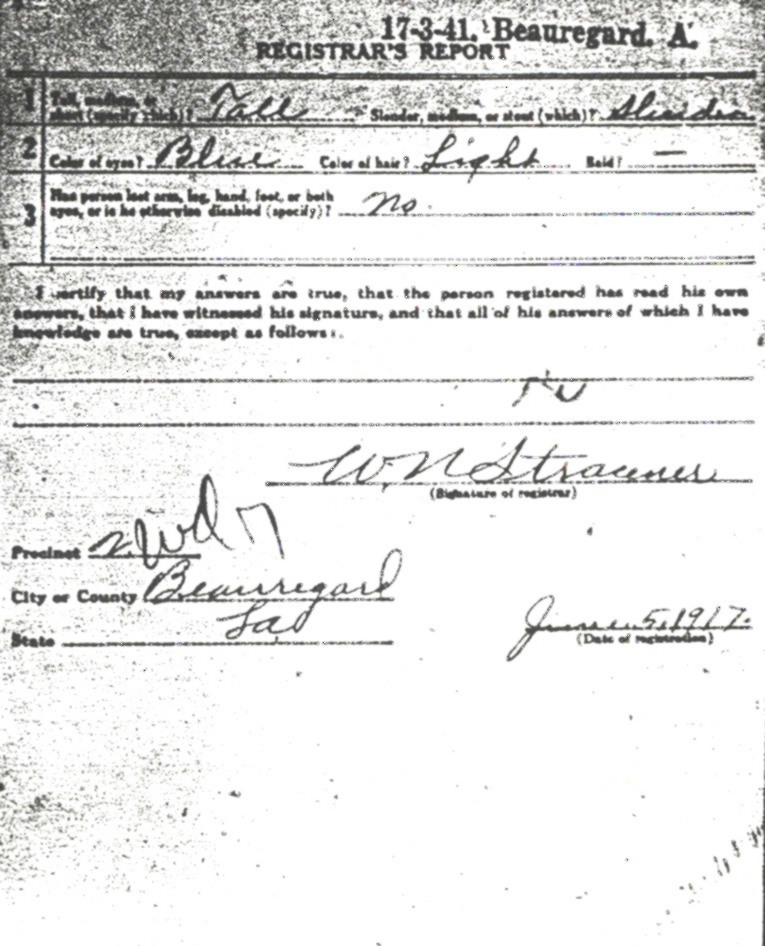 17-3-41. Beauregard. A.
REGISTRAR'S REPORT
1 Tall, medium, or short (specify which)? Tall Slender, medium, or stout (which)? Slender
2 Color of eyes? Blue Color of hair? Light Bald? —
3 Has person lost arm, leg, hand, foot, or both
eyes, or is he otherwise disabled (specify)? no
I certify that my answers are true, that the person registered has read his own
answers, that I have witnessed his signature, and that all of his answers of which I have
knowledge are true, except as follows:
W. N. Stracener
(Signature of registrar)
Precinct 2 Wd 7
City or County Beauregard
State La
June 5, 1917.
(Date of registration)